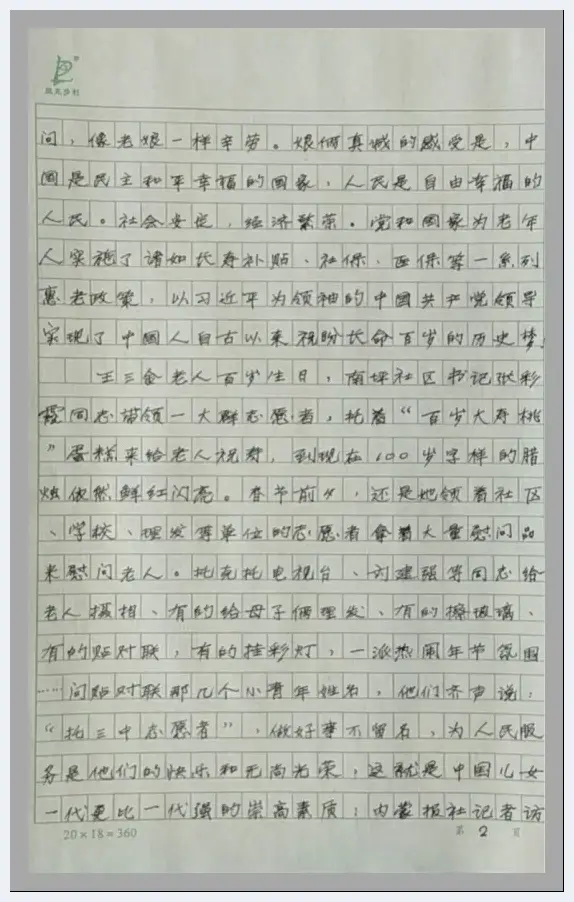 问，像老娘一样辛劳。娘俩真诚的感受是，中
国是民主和平幸福的国家，人民是自由幸福的
人民。社会安定，经济繁荣。党和国家为老年
人实施了诸如长寿补贴、社保、医保等一系列
惠老政策，以习近平为领袖的中国共产党领导
实现了中国人自古以来祝盼长命百岁的历史梦！
王三金老人百岁生日，南坪社区书记张彩
霞同志带领一大群志愿者，托着“百岁大寿桃
”蛋糕来给老人祝寿，到现在100岁字样的腊
烛依然鲜红闪亮。春节前夕，还是她领着社区
、学校、理发等单位的志愿者拿着大量慰问品
来慰问老人。托克托电视台、刘建强等同志给
老人摄相、有的给母子俩理发、有的擦玻璃、
有的贴对联，有的挂彩灯，一派热闹年节氛围
……问贴对联那几个小青年姓名，他们齐声说：
“托三中志愿者”，做好事不留名，为人民服
务是他们的快乐和无尚光荣，这就是中国儿女
一代更比一代强的崇高素质；内蒙报社记者访
20×18=360
第 2 页